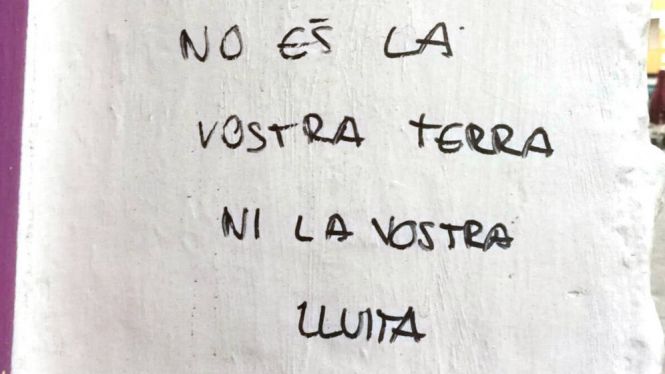 NO ÉS LA
VOSTRA TERRA
NI LA VOSTRA
LLUITA